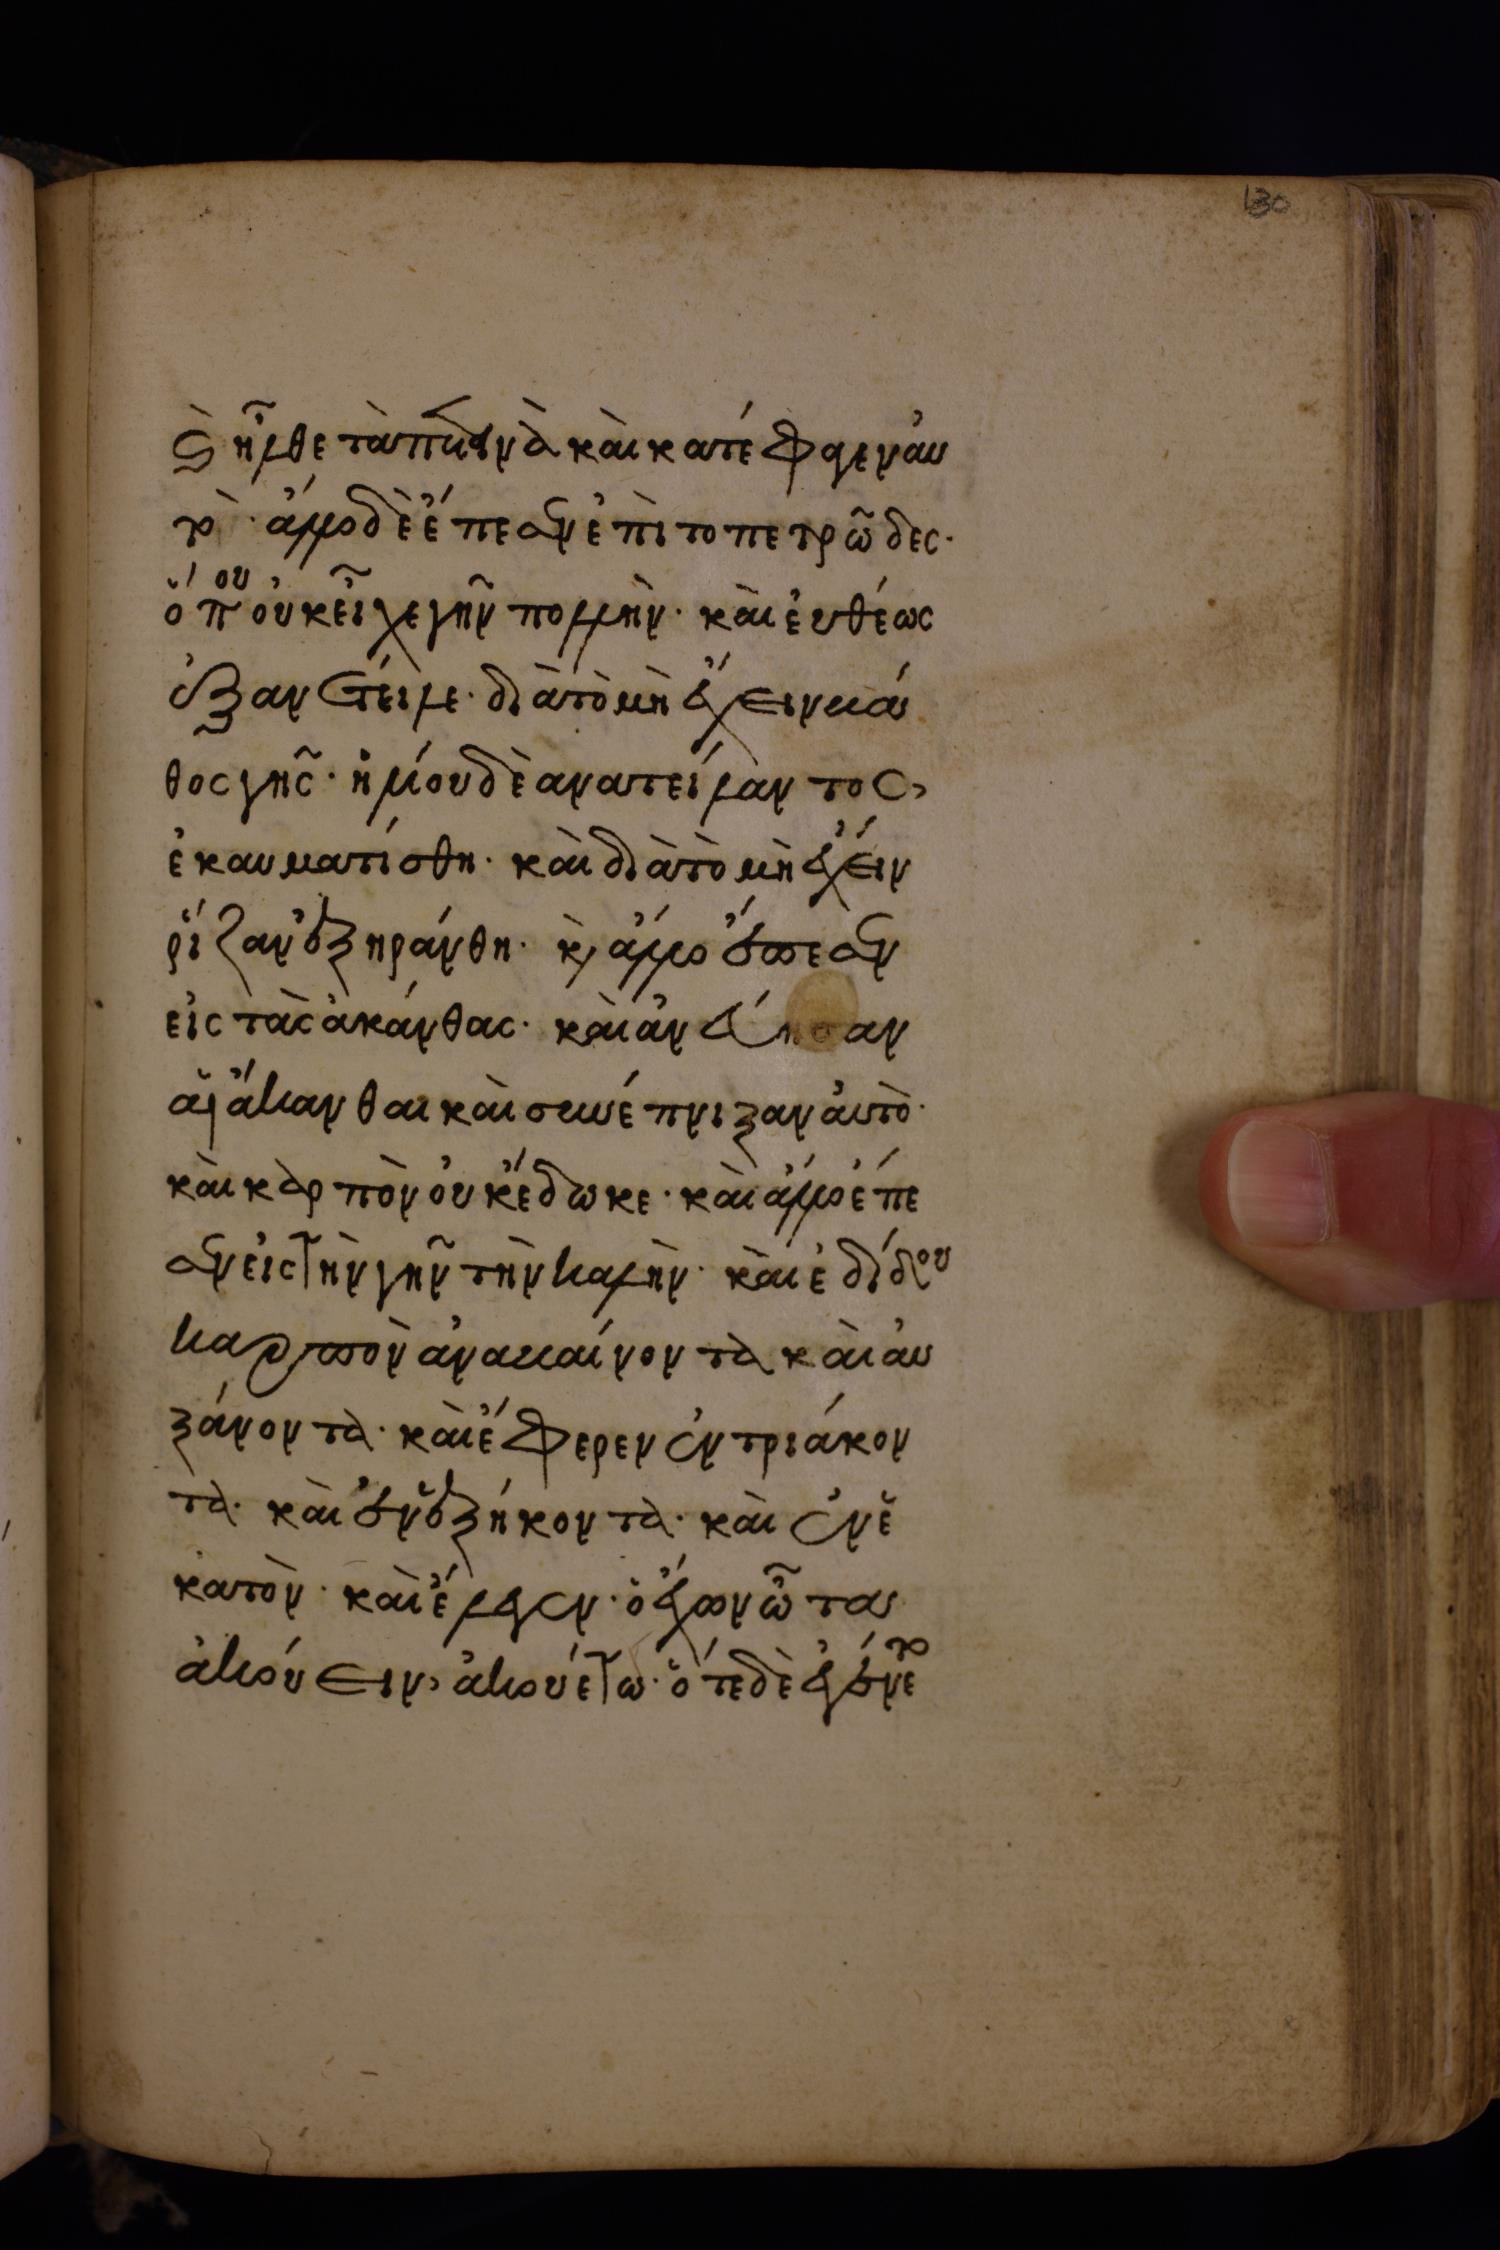 130
ϛ̀ ἦλθε τὰ πετεινὰ καὶ κατέφαγεν ἀυ
τὸ· ἄλλο δὲ ἔπεσεν ἐπὶ το πετρῶδες·
ὅπου ὀυκ εἶχε γῆν πολλὴν· καὶ ἐυθέως
ἐξανέτειλε· διὰ τὸ μὴ ἔχειν βά
θος γῆς· ἡλίου δὲ ανατείλαντος,
ἐκαυματίσθη· καὶ διὰ τὸ μὴ ἔχειν
ῥίζαν ἐξηράνθη· κ, ἄλλο ἔπεσεν
εἰς τὰς ἀκάνθας· καὶ ἀνέβησαν
αἱ ἄκανθαι καὶ συνέπνιξαν ἀυτὸ·
καὶ καρπὸν ὀυκ ἔδωκε· καὶ ἄλλο ἔπε
σεν εἰς τὴν γῆν τὴν καλὴν· καὶ ἐδίδου
καρπὸν ἀναβαίνοντα καὶ ἀυ
ξάνοντα· καὶ ἔφερεν ἐν τριάκον
τα· καὶ ἐν ἑξήκοντα· καὶ ἐν ἑ
κατὸν· καὶ ἔλεγεν· ὁ ἔχων ὦτα
ἀκούειν, ἀκουέτω· ὅτε δὲ ἐγένετο